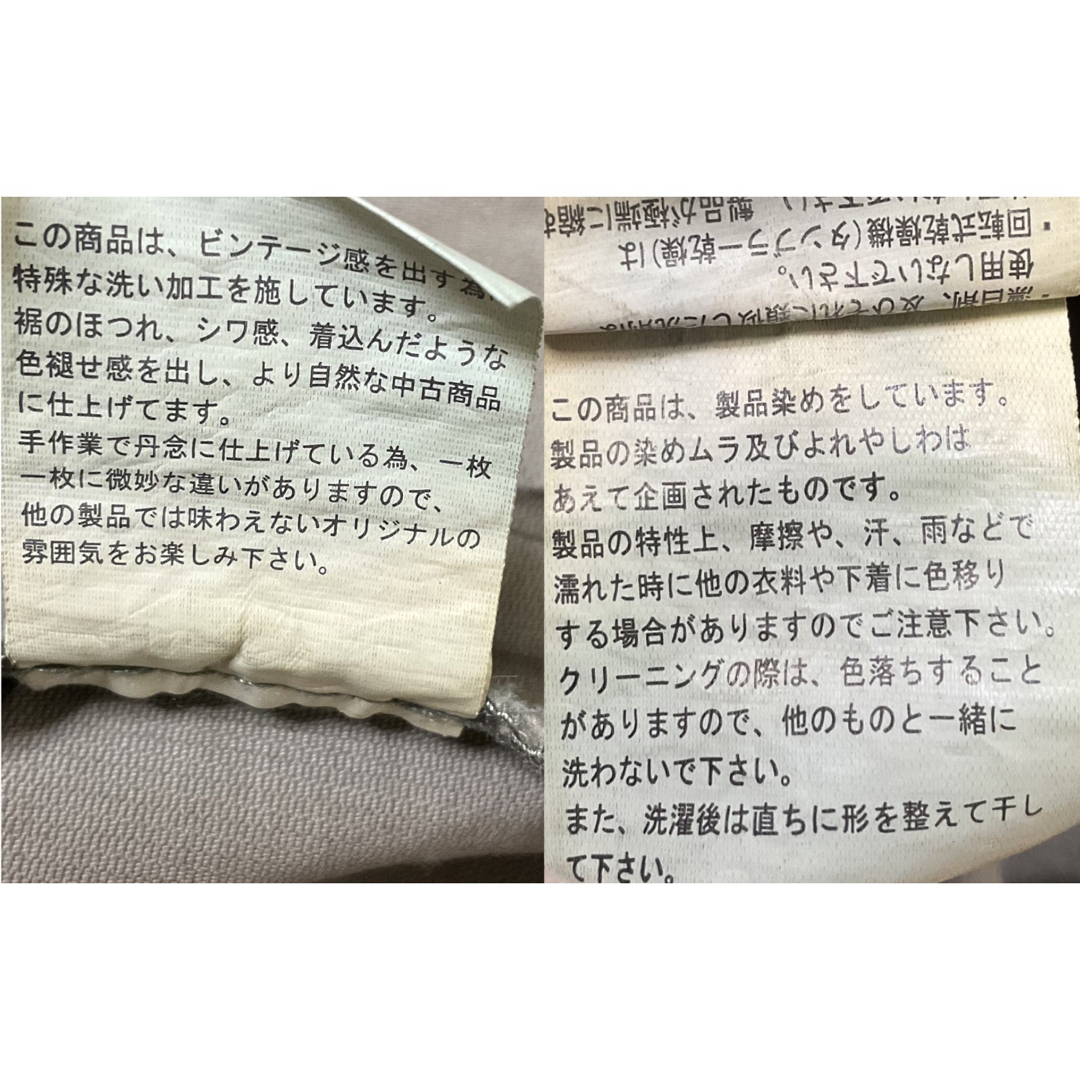 この商品は、ビンテージ感を出す為、
特殊な洗い加工を施しています。
裾のほつれ、シワ感、着込んだような
色褪せ感を出し、より自然な中古商品
に仕上げてます。
手作業で丹念に仕上げている為、一枚
一枚に微妙な違いがありますので、
他の製品では味わえないオリジナルの
雰囲気をお楽しみ下さい。
・漂白剤、及びそれに類似した洗剤は
使用しないで下さい。
・回転式乾燥機(タンブラー乾燥)は
製品が極端に縮む
この商品は、製品染めをしています。
製品の染めムラ及びよれやしわは
あえて企画されたものです。
製品の特性上、摩擦や、汗、雨などで
濡れた時に他の衣料や下着に色移り
する場合がありますのでご注意下さい。
クリーニングの際は、色落ちすること
がありますので、他のものと一緒に
洗わないで下さい。
また、洗濯後は直ちに形を整えて干し
て下さい。